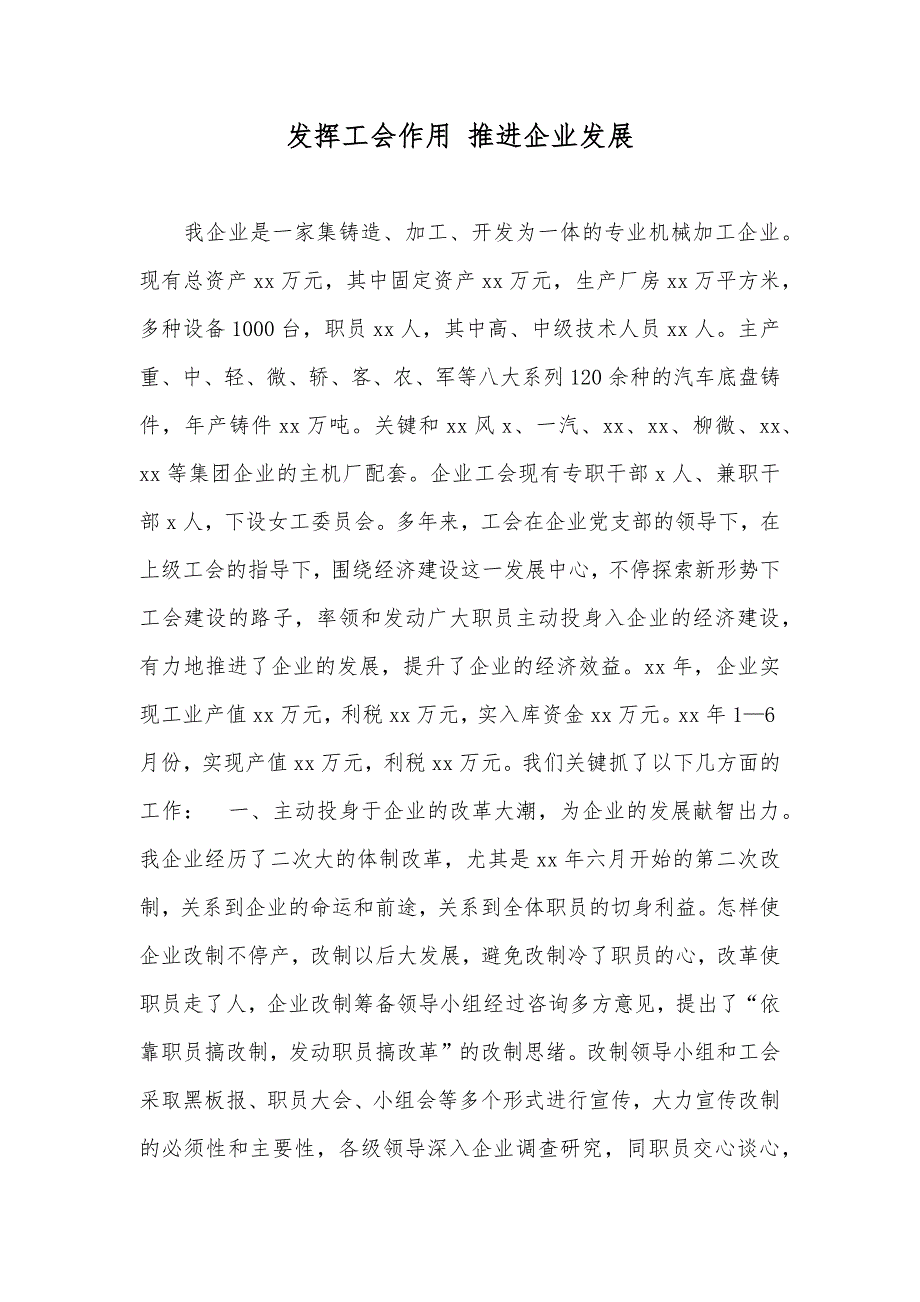 发挥工会作用 推进企业发展
我企业是一家集铸造、加工、开发为一体的专业机械加工企业。
现有总资产 xx 万元，其中固定资产 xx 万元，生产厂房 xx 万平方米，
多种设备 1000 台，职员 xx 人，其中高、中级技术人员 xx 人。主产
重、中、轻、微、轿、客、农、军等八大系列 120 余种的汽车底盘铸
件，年产铸件 xx 万吨。关键和 xx 风 x、一汽、xx、xx、柳微、xx、
xx 等集团企业的主机厂配套。企业工会现有专职干部 x 人、兼职干
部 x 人，下设女工委员会。多年来，工会在企业党支部的领导下，在
上级工会的指导下，围绕经济建设这一发展中心，不停探索新形势下
工会建设的路子，率领和发动广大职员主动投身入企业的经济建设，
有力地推进了企业的发展，提升了企业的经济效益。xx 年，企业实
现工业产值 xx 万元，利税 xx 万元，实入库资金 xx 万元。xx 年 1—6
月份，实现产值 xx 万元，利税 xx 万元。我们关键抓了以下几方面的
工作： 一、主动投身于企业的改革大潮，为企业的发展献智出力。
我企业经历了二次大的体制改革，尤其是 xx 年六月开始的第二次改
制，关系到企业的命运和前途，关系到全体职员的切身利益。怎样使
企业改制不停产，改制以后大发展，避免改制冷了职员的心，改革使
职员走了人，企业改制筹备领导小组经过咨询多方意见，提出了“依
靠职员搞改制，发动职员搞改革”的改制思绪。改制领导小组和工会
采取黑板报、职员大会、小组会等多个形式进行宣传，大力宣传改制
的必须性和主要性，各级领导深入企业调查研究，同职员交心谈心，